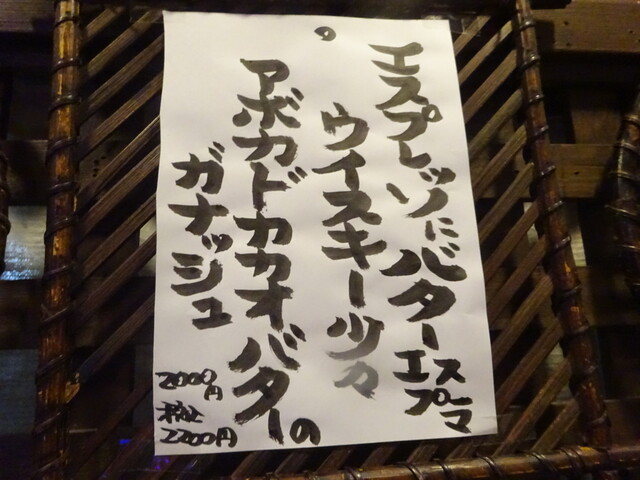 エスプレッソにバターエスプーマ
ウイスキーツタ
アボカドカカオバターの
ガナッシュ
2000円
税込
2200円